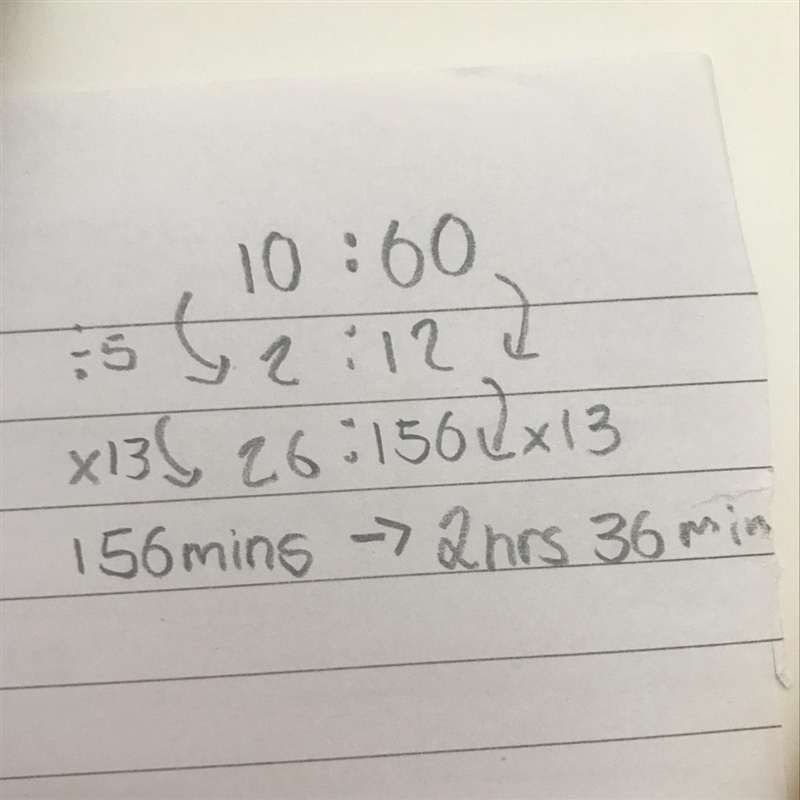 10 : 60
÷5 2 : 12
x13 26 : 156 x13
156mins → 2hrs 36min